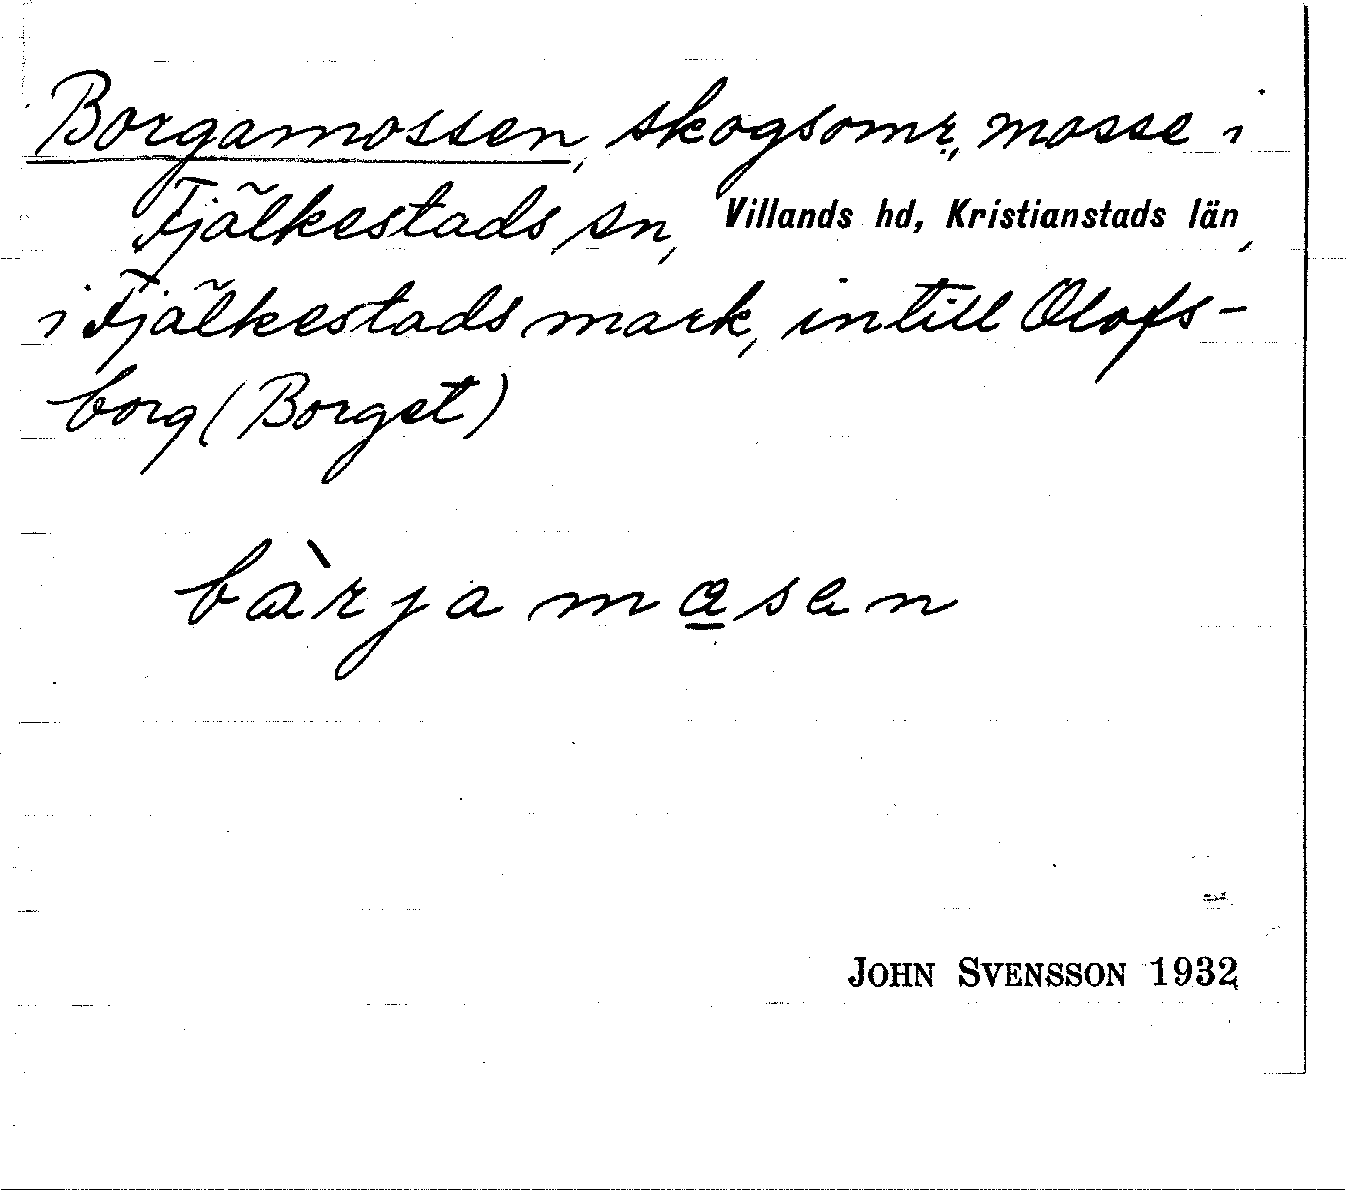 Borgamossen, skogsomr., mosse i
Fjälkestads sn, Villands hd, Kristianstads län,
i Fjälkestads mark, intill Olofs-
borg (Borget)
bàrjamasen
JOHN SVENSSON 1932